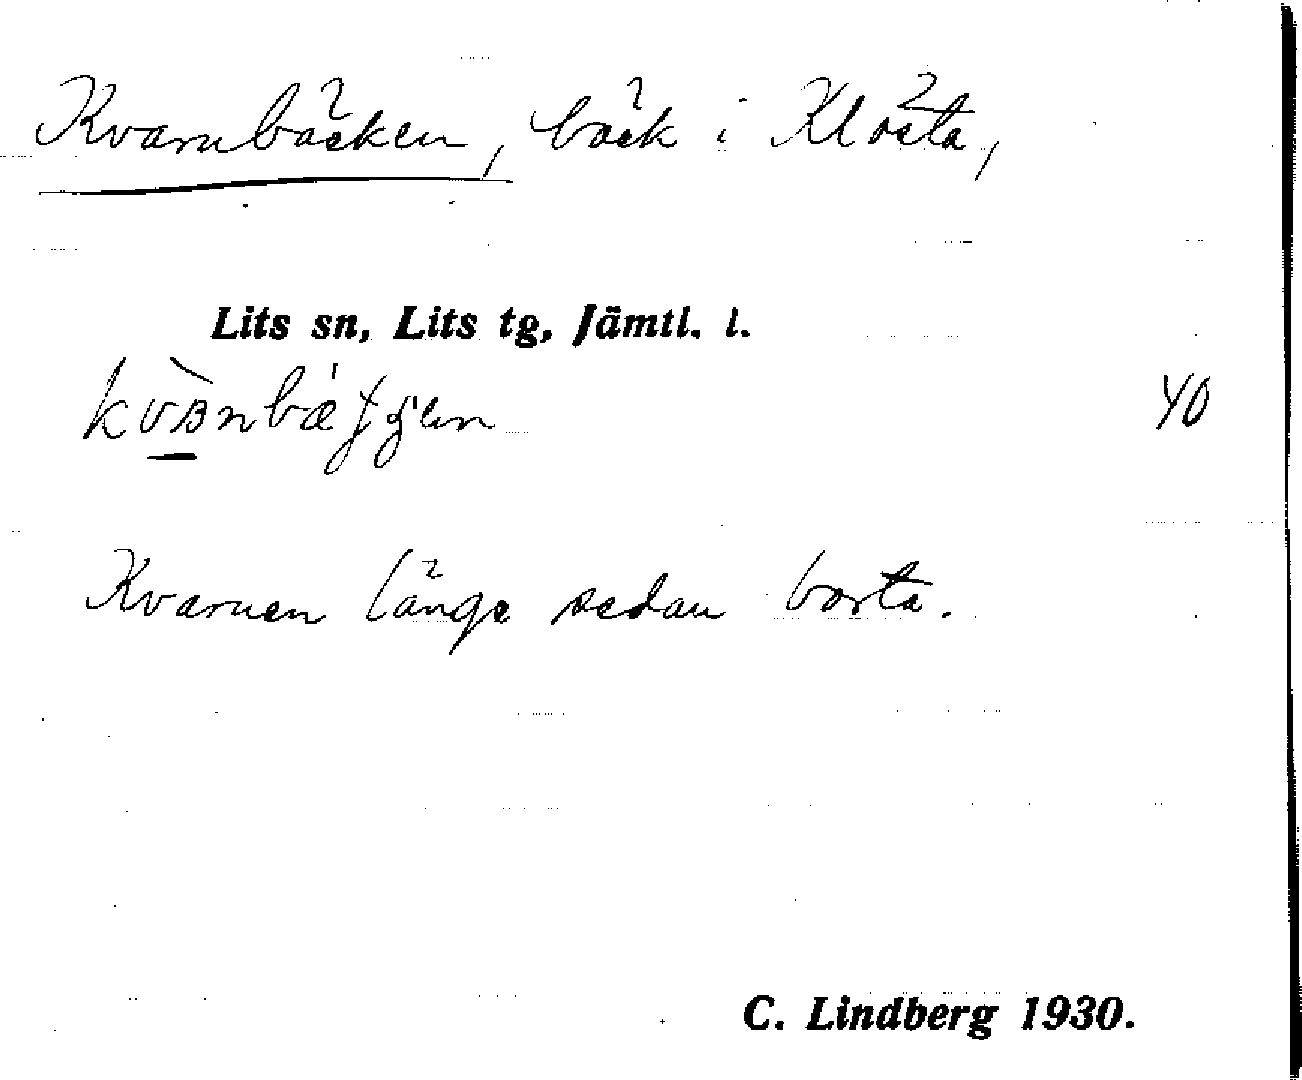 Kvarnbäcken, bäck i Klösta,
Lits sn, Lits tg, Jämtl. l.
40
Kvarnen länge sedan borta.
C. Lindberg 1930.